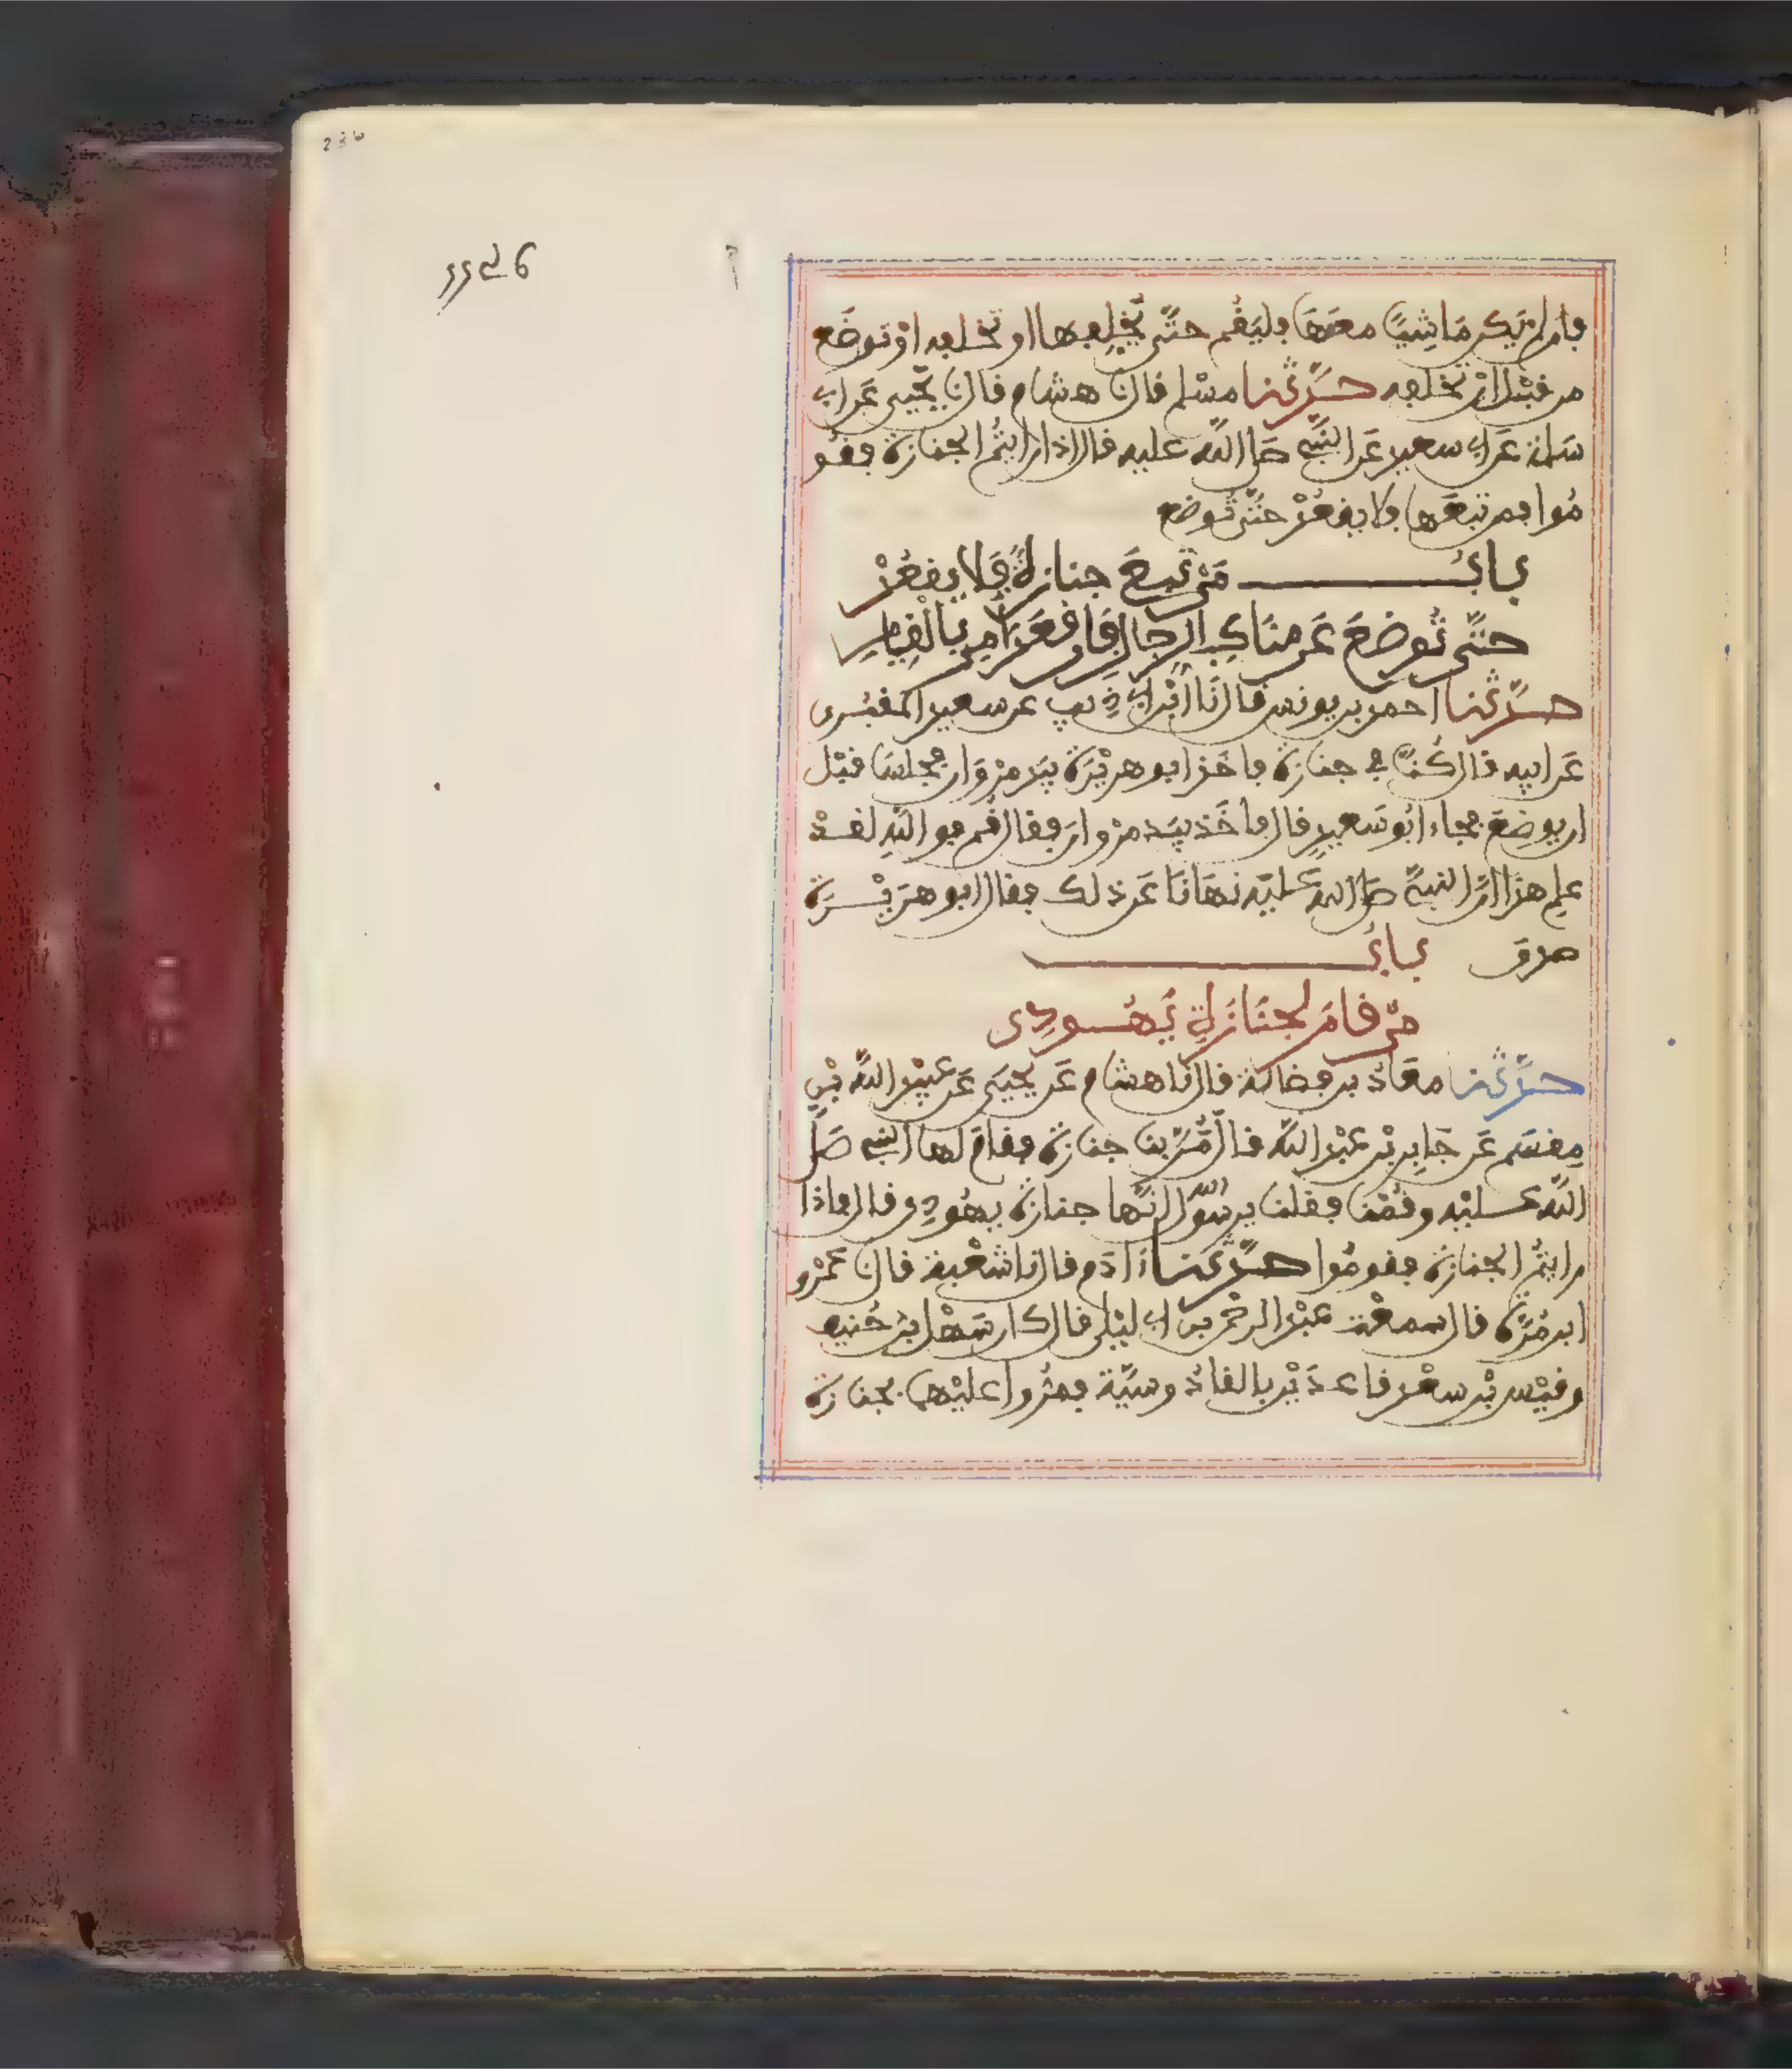 فإن لم يكن مَاشِيًا معَهَا فليَقُم حتَّى يُخَلِّفها او تخلفه اوْ توضَع
من قبْل انْ تخلفه حدَّثنا مسْلم قال نا هشام قال نا يحْيى عَن ابي
سَلمة عَن ابي سعيد عَن النبيّ صلى اللّه عليه قال اذا رايتُم الجنازة فقُو
مُوا فمن تبعَها فلا يقعُدْ حتَّى تُوضع
بابُ مَنْ تَبِعَ جنازةً فَلا يقعُدْ
حتَّى تُوضَعَ عَن منَاكِب الرجال فإن قعَدَ أُمِرَ بالْقِيامِ
حدَّثنا احمد بن يونس قال نا ابْن ابي ذِئب عن سعيد المقبُري
عَن ابيه قال كُنَّا في جنازة فاخَذ ابو هريْرَة بيَد مرْوَان فجلسَا قبْل
ان يوضَعَ فجاء ابُو سَعيدٍ قال فاخَذ بيَد مرْوان فقال قُم فو اللّهِ لقدْ
علم هذا انَّ النبيَّ صلى اللّه عَليْه نهَانَا عَن ذلك فقال ابو هرَيْرَة
صدق بابُ
مَنْ قامَ لجنَازَةِ يَهُودِي
حدَّثنا معَاذ بن فضالة قال نا هشام عَن يحْيَى عَن عبيْد اللّه بْنِ
مِقسَم عَن جَابِر بْن عبْد اللّه قال مُرَّ بنا جنازة فقامَ لها النبي صَلى
اللّه عليْه وقُمْنا فقلنا يرسُول الله انَّها جنازة يهُودِي قال فاذا
رايتُم الجنازة فقومُوا حدَّثنا ءادَم قال نا شعْبة قال نا عمْرو
ابن مُرَّة قال سمعْت عبْد الرحْمن بن ابي ليْلى قال كان سَهْل بْن حُنيف
وقيْس بْن سعْد قاعدَيْن بالقادسيَّة فمرُّوا عليْهما بجنازة